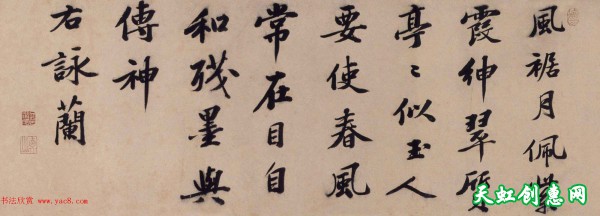 風裾月佩紫
霞紳翠質
亭〻似玉人
要使春風
常在目自
和殘墨與
傳神
右詠蘭
书法欣赏 www.yac8.com
天虹创意网